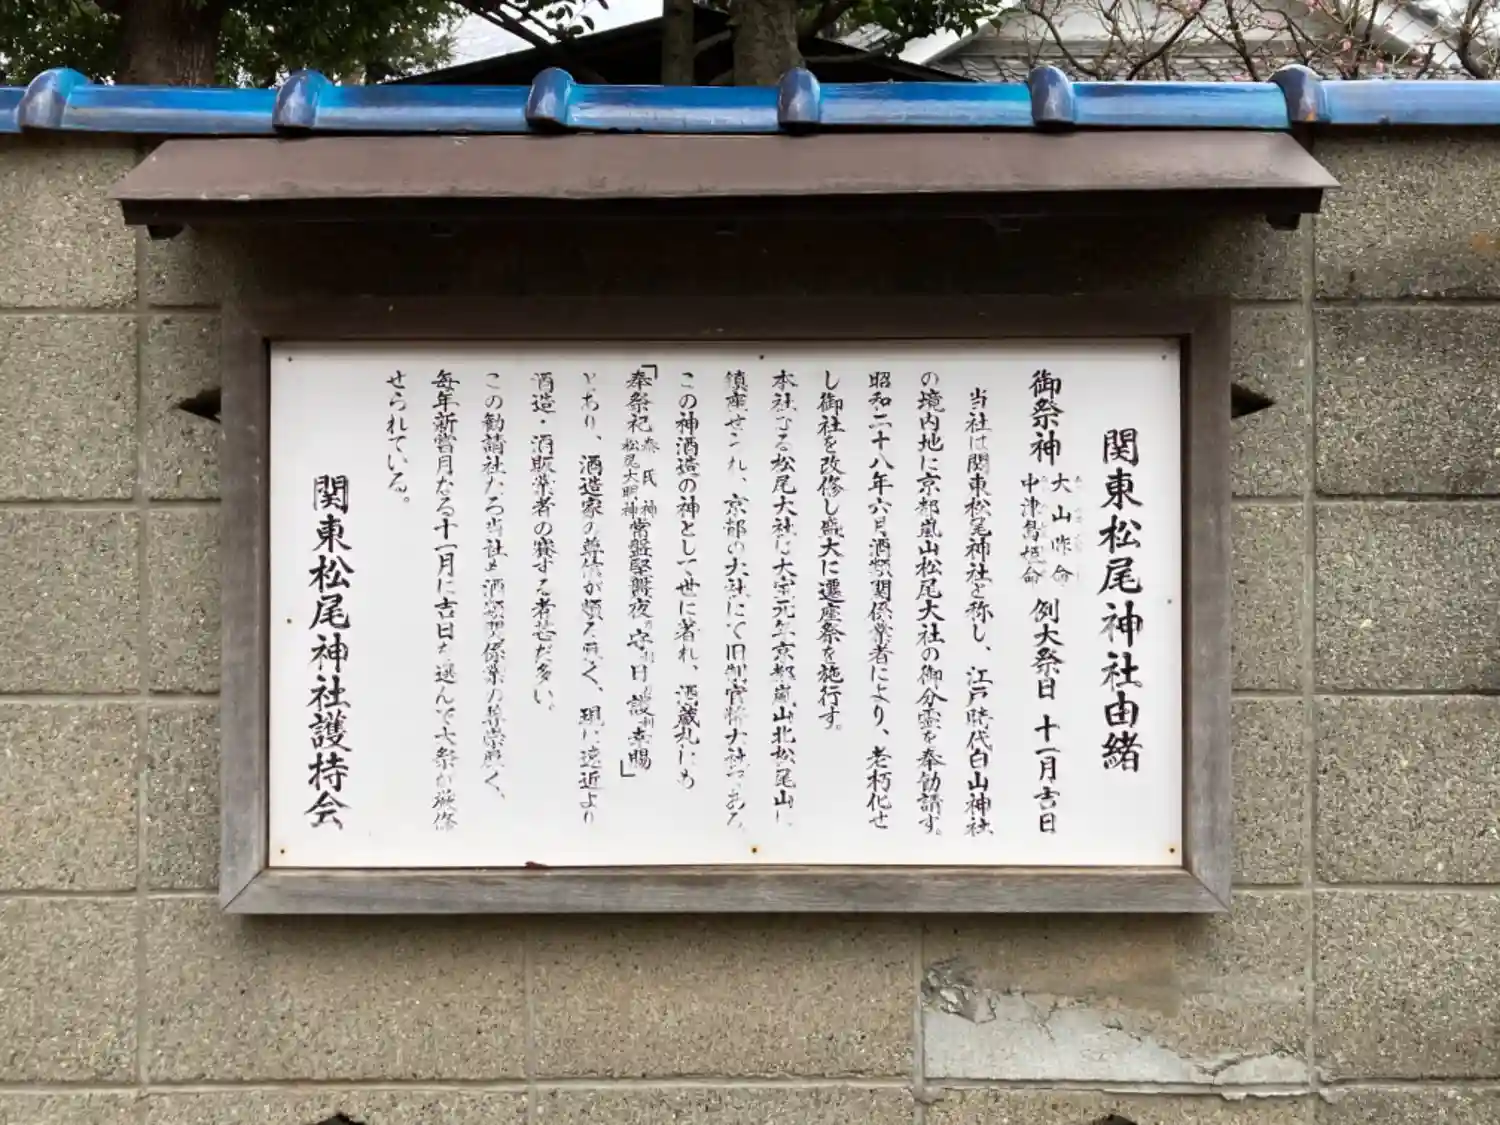 関東松尾神社由緒
御祭神 大山咋命 中津島姫命 例大祭日 十一月吉日
当社は関東松尾神社と称し、江戸時代白山神社
の境内地に京都嵐山松尾大社の御分霊を奉勧請す。
昭和二十八年六月酒類関係業者により、老朽化せ
し御社を改修し盛大に遷座祭を施行す。
本社なる松尾大社は大宝元年京都嵐山北松尾山に
鎮座せられ、京都の大社にて旧制官幣大社である
この神酒造の神として世に著れ、酒蔵札にも
「奉祭祀 秦氏神 松尾大明神 常盤堅盤夜守日護幸賜」
とあり、酒造家の尊信が頗る厚く、現に遠近より
酒造・酒販業者の賽する者甚だ多い。
この勧請社たる当社も酒類関係業の尊崇厚く、
毎年新嘗月なる十一月に吉日を選んで大祭が厳修
せられている。
関東松尾神社護持会